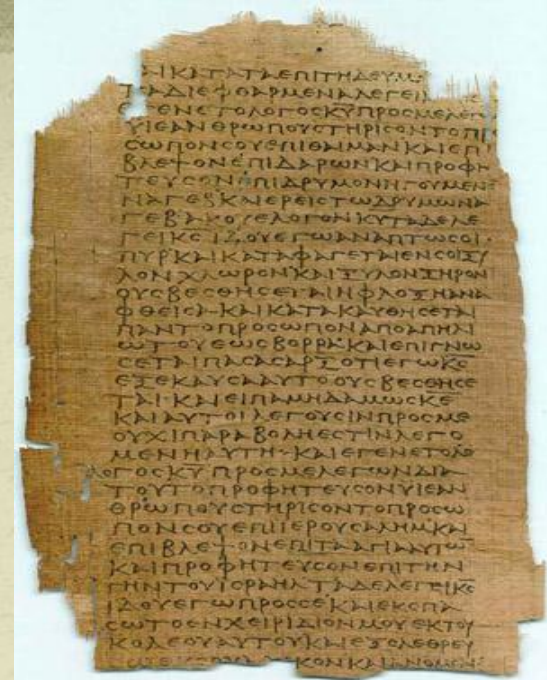 ΑΙΚΑΤΑΤΑΕΠΙΤΗΔΕΥΜ
ΤϹΑΔΙΕΦΘΑΡΜΕΝΑΛΕΓΕΙ
ΕΓΕΝΕΤΟΛΟΓΟϹΚ̅Υ̅ΠΡΟϹΜΕΛΕΓ
ΥΙΕΑΝΘΡΩΠΟΥϹΤΗΡΙϹΟΝΤΟΠ
ϹΩΠΟΝϹΟΥΕΠΙΘΑΙΜΑΝΚΑΙΕΠΙ
ΒΛΕΨΟΝΕΠΙΔΑΡΩΝΚΑΙΠΡΟΦΗ
ΤΕΥϹΟΝΕΠΙΔΡΥΜΟΝΗΓΟΥΜΕΝ
ΝΑΓΕΒΚΑΙΕΡΕΙϹΤΩΔΡΥΜΩΝΑ
ΓΕΒΑΚΟΥΕΛΟΓΟΝΚΥΤΑΔΕΛΕ
ΓΕΙΚϹΙΔΟΥΕΓΩΑΝΑΠΤΩϹΟΙ
ΠΥΡΚΑΙΚΑΤΑΦΑΓΕΤΑΙΕΝϹΟΙΞΥ
ΛΟΝΧΛΩΡΟΝΚΑΙΞΥΛΟΝΞΗΡΟΝ
ΟΥϹΒΕϹΘΗϹΕΤΑΙΗΦΛΟΞΗΑΝΑ
ΦΘΕΙϹΑΚΑΙΚΑΤΑΚΑΥΘΗϹΕΤΑΙ
ΠΑΝΤΟΠΡΟϹΩΠΟΝΑΠΟΑΠΗΛΙ
ΩΤΟΥΕΩϹΒΟΡΡΑΚΑΙΕΠΙΓΝΩ
ϹΕΤΑΙΠΑϹΑϹΑΡΞΟΤΙΕΓΩΚ̅Ϲ̅
ΕΞΕΚΑΥϹΑΑΥΤΟΟΥϹΒΕϹΘΗϹΕ
ΤΑΙ·ΚΑΙΕΙΠΑΜΗΔΑΜΩϹΚ̅Ε̅
ΚΑΙΑΥΤΟΙΛΕΓΟΥϹΙΝΠΡΟϹΜΕ
ΟΥΧΙΠΑΡΑΒΟΛΗΕϹΤΙΝΛΕΓΟ
ΜΕΝΗΑΥΤΗ·ΚΑΙΕΓΕΝΕΤΟΛΟ
ΓΟϹΚ̅Υ̅ΠΡΟϹΜΕΛΕΓΩΝΔΙΑ
ΤΟΥΤΟΠΡΟΦΗΤΕΥϹΟΝΥΙΕΑΝ
ΘΡΩΠΟΥϹΤΗΡΙϹΟΝΤΟΠΡΟϹΩ
ΠΟΝϹΟΥΕΠΙΙΕΡΟΥϹΑΛΗΜΚΑΙ
ΕΠΙΒΛΕΨΟΝΕΠΙΤΑΑΓΙΑΑΥΤΩ
ΚΑΙΠΡΟΦΗΤΕΥϹΟΝΕΠΙΤΗΝ
ΓΗΝΤΟΥΙϹΡΑΗΛΤΑΔΕΛΕΓΕΙΚ̅Ϲ̅
ΙΔΟΥΕΓΩΠΡΟϹϹΕΚΑΙΕΚϹΠΑ
ϹΩΤΟΕΝΧΕΙΡΙΔΙΟΝΜΟΥΕΚΤΟΥ
ΚΟΛΕΟΥΑΥΤΟΥΚΑΙΕΞΟΛΕΘΡΕΥ
ΚΟΝΚΑΙΑΝΟΜΟΝ